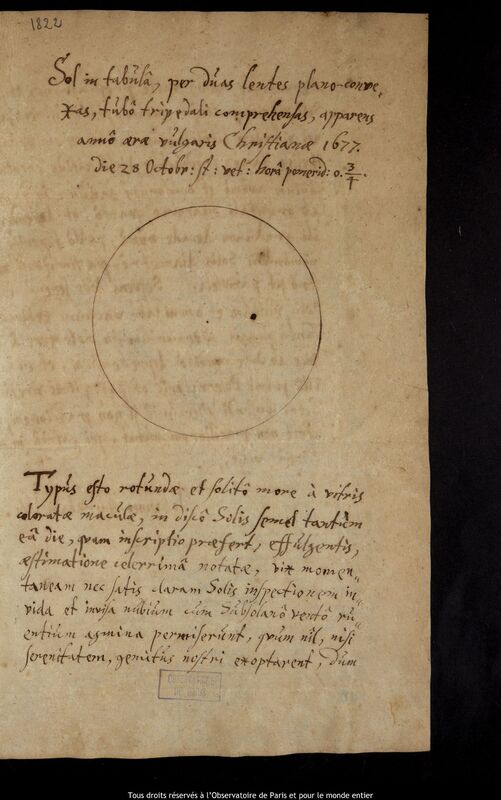 1822
Sol in tabulâ, per duas lentes plano-conve,
xas, tubô tripedali comprehensas, apparens
annô æræ vulgaris Christianæ 1677.
die 28 Octobr: st: vet: horâ pomerid: 0. 3/4.
Typus esto rotundæ et solitô more à vitris
coloratæ maculæ, in discô Solis semel tantùm
eâ die, quam inscriptio præfert, effulgentis,
æstimatione celerrimâ notatæ, vix momen-
taneam nec satis claram Solis inspectionem in-
vida et invisa nubium cum Subsolanô ventô ru-
entium agmina permiserunt, quum nil, nisi
serenitatem, gemitus nostri exoptarent, dum
OBSERVATOIRE
DE PARIS
Tous droits réservés à l'Observatoire de Paris et pour le monde entier